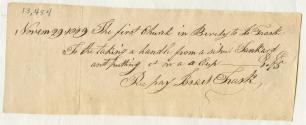 13,454
Novem 29 1849 The first Church in Beverly to I. Trask
To the taking a handle from a silver Tankard
and putting it on a Cup
Recd pay Israel Trask